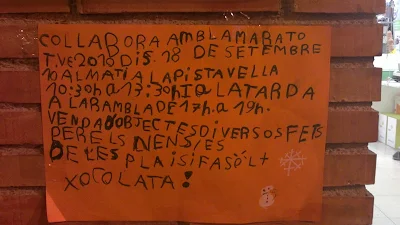 COLLABORA AMB LA MARATO
T.V.E 2010 DIS. 18 DE SETEMBRE
10 AL MATI A LA PISTA VELLA
10:30h A 13:30h I A LA TARDA
A LA RAMBLA DE 17h. A 19h.
VENDA D'OBJECTES DIVERSOS FETS
PER ELS NENS/ES
DE LES PLAISIFASÓL +
XOCOLATA!